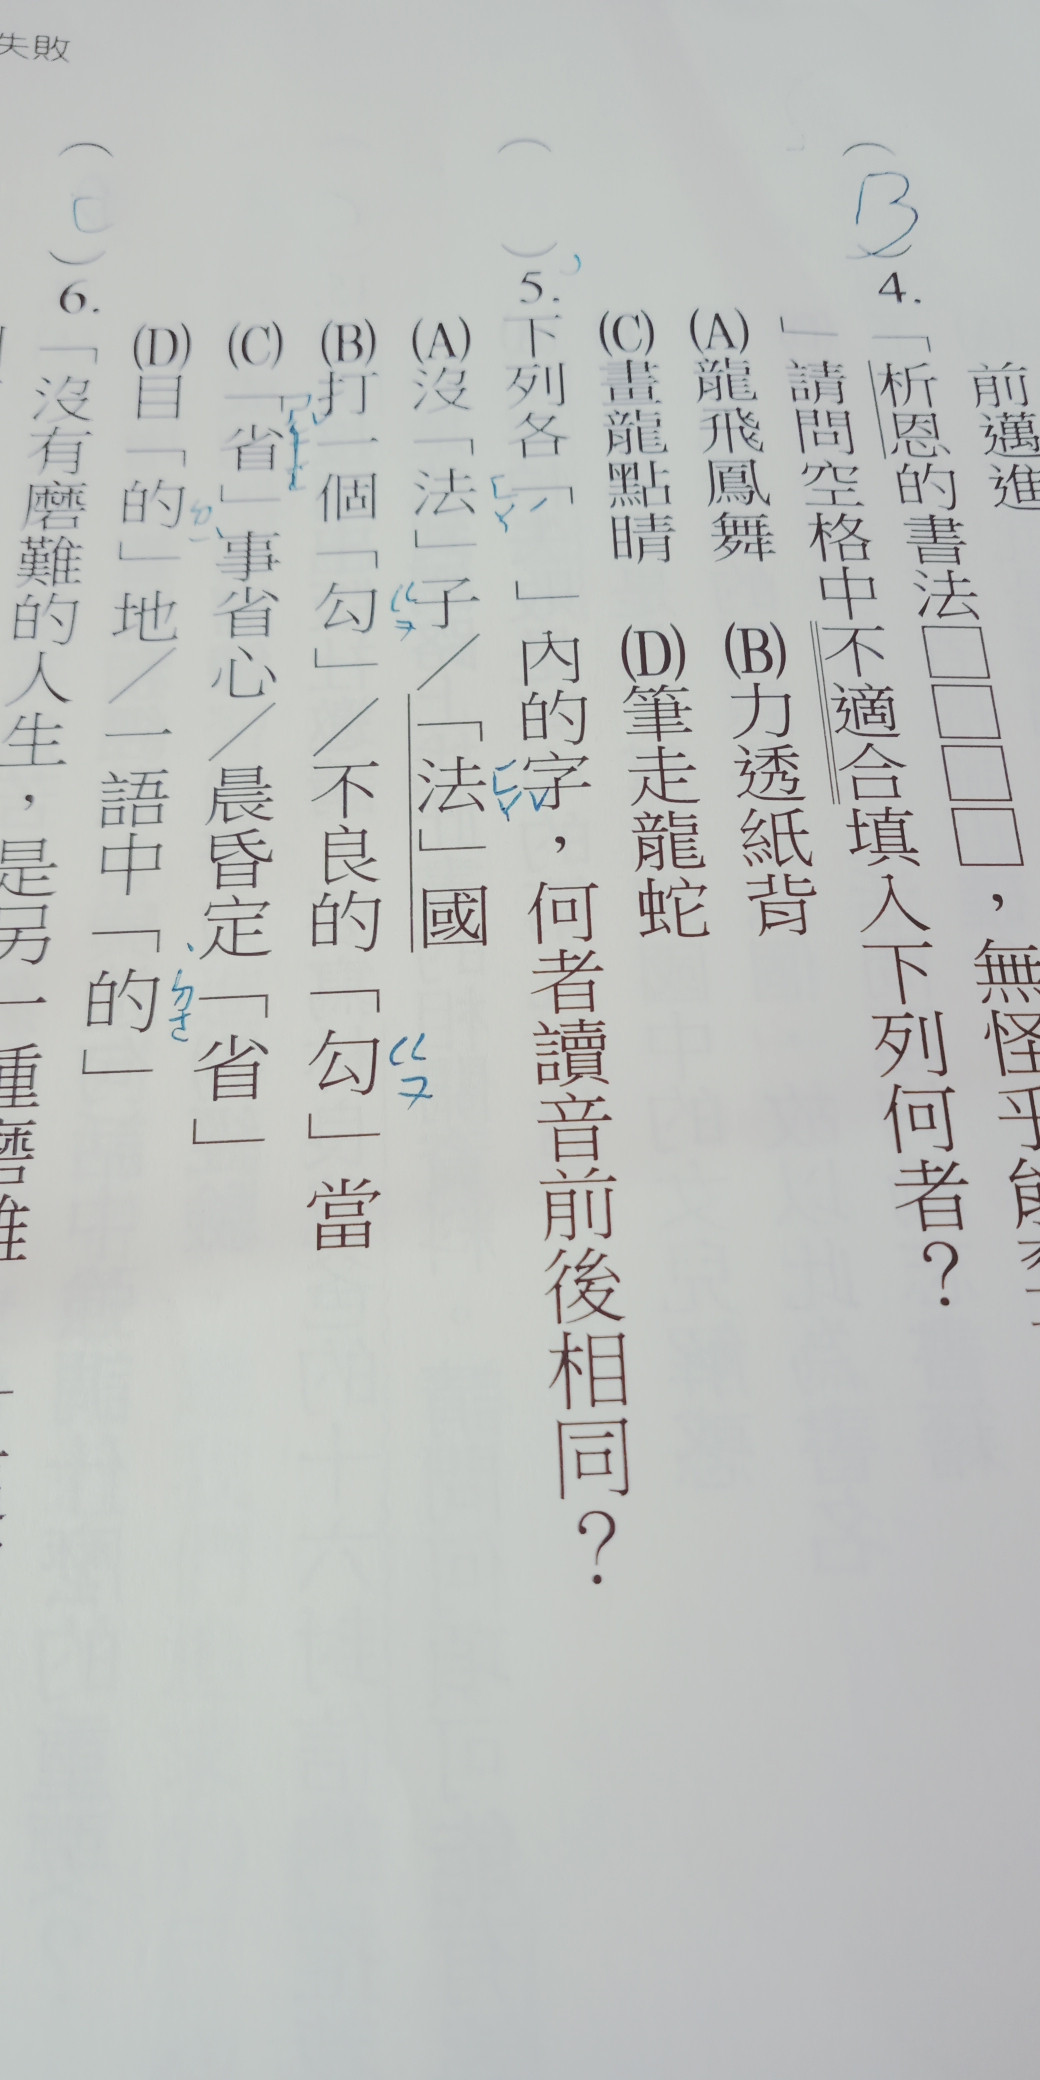 失敗
前邁進
(B)4.「析恩的書法□□□□，無怪乎
」請問空格中不適合填入下列何者？
(A)龍飛鳳舞 (B)力透紙背
(C)畫龍點睛 (D)筆走龍蛇
( )5.下列各「 」內的字，何者讀音前後相同？
(A)沒「法」子／「法」國
ㄈㄚˊ ㄈㄚˋ
(B)打一個「勾」／不良的「勾」當
ㄍㄡ ㄍㄡ
(C)「省」事省心／晨昏定「省」
(D)目「的」地／一語中「的」
6.「沒有磨難的人生，是另一重磨難